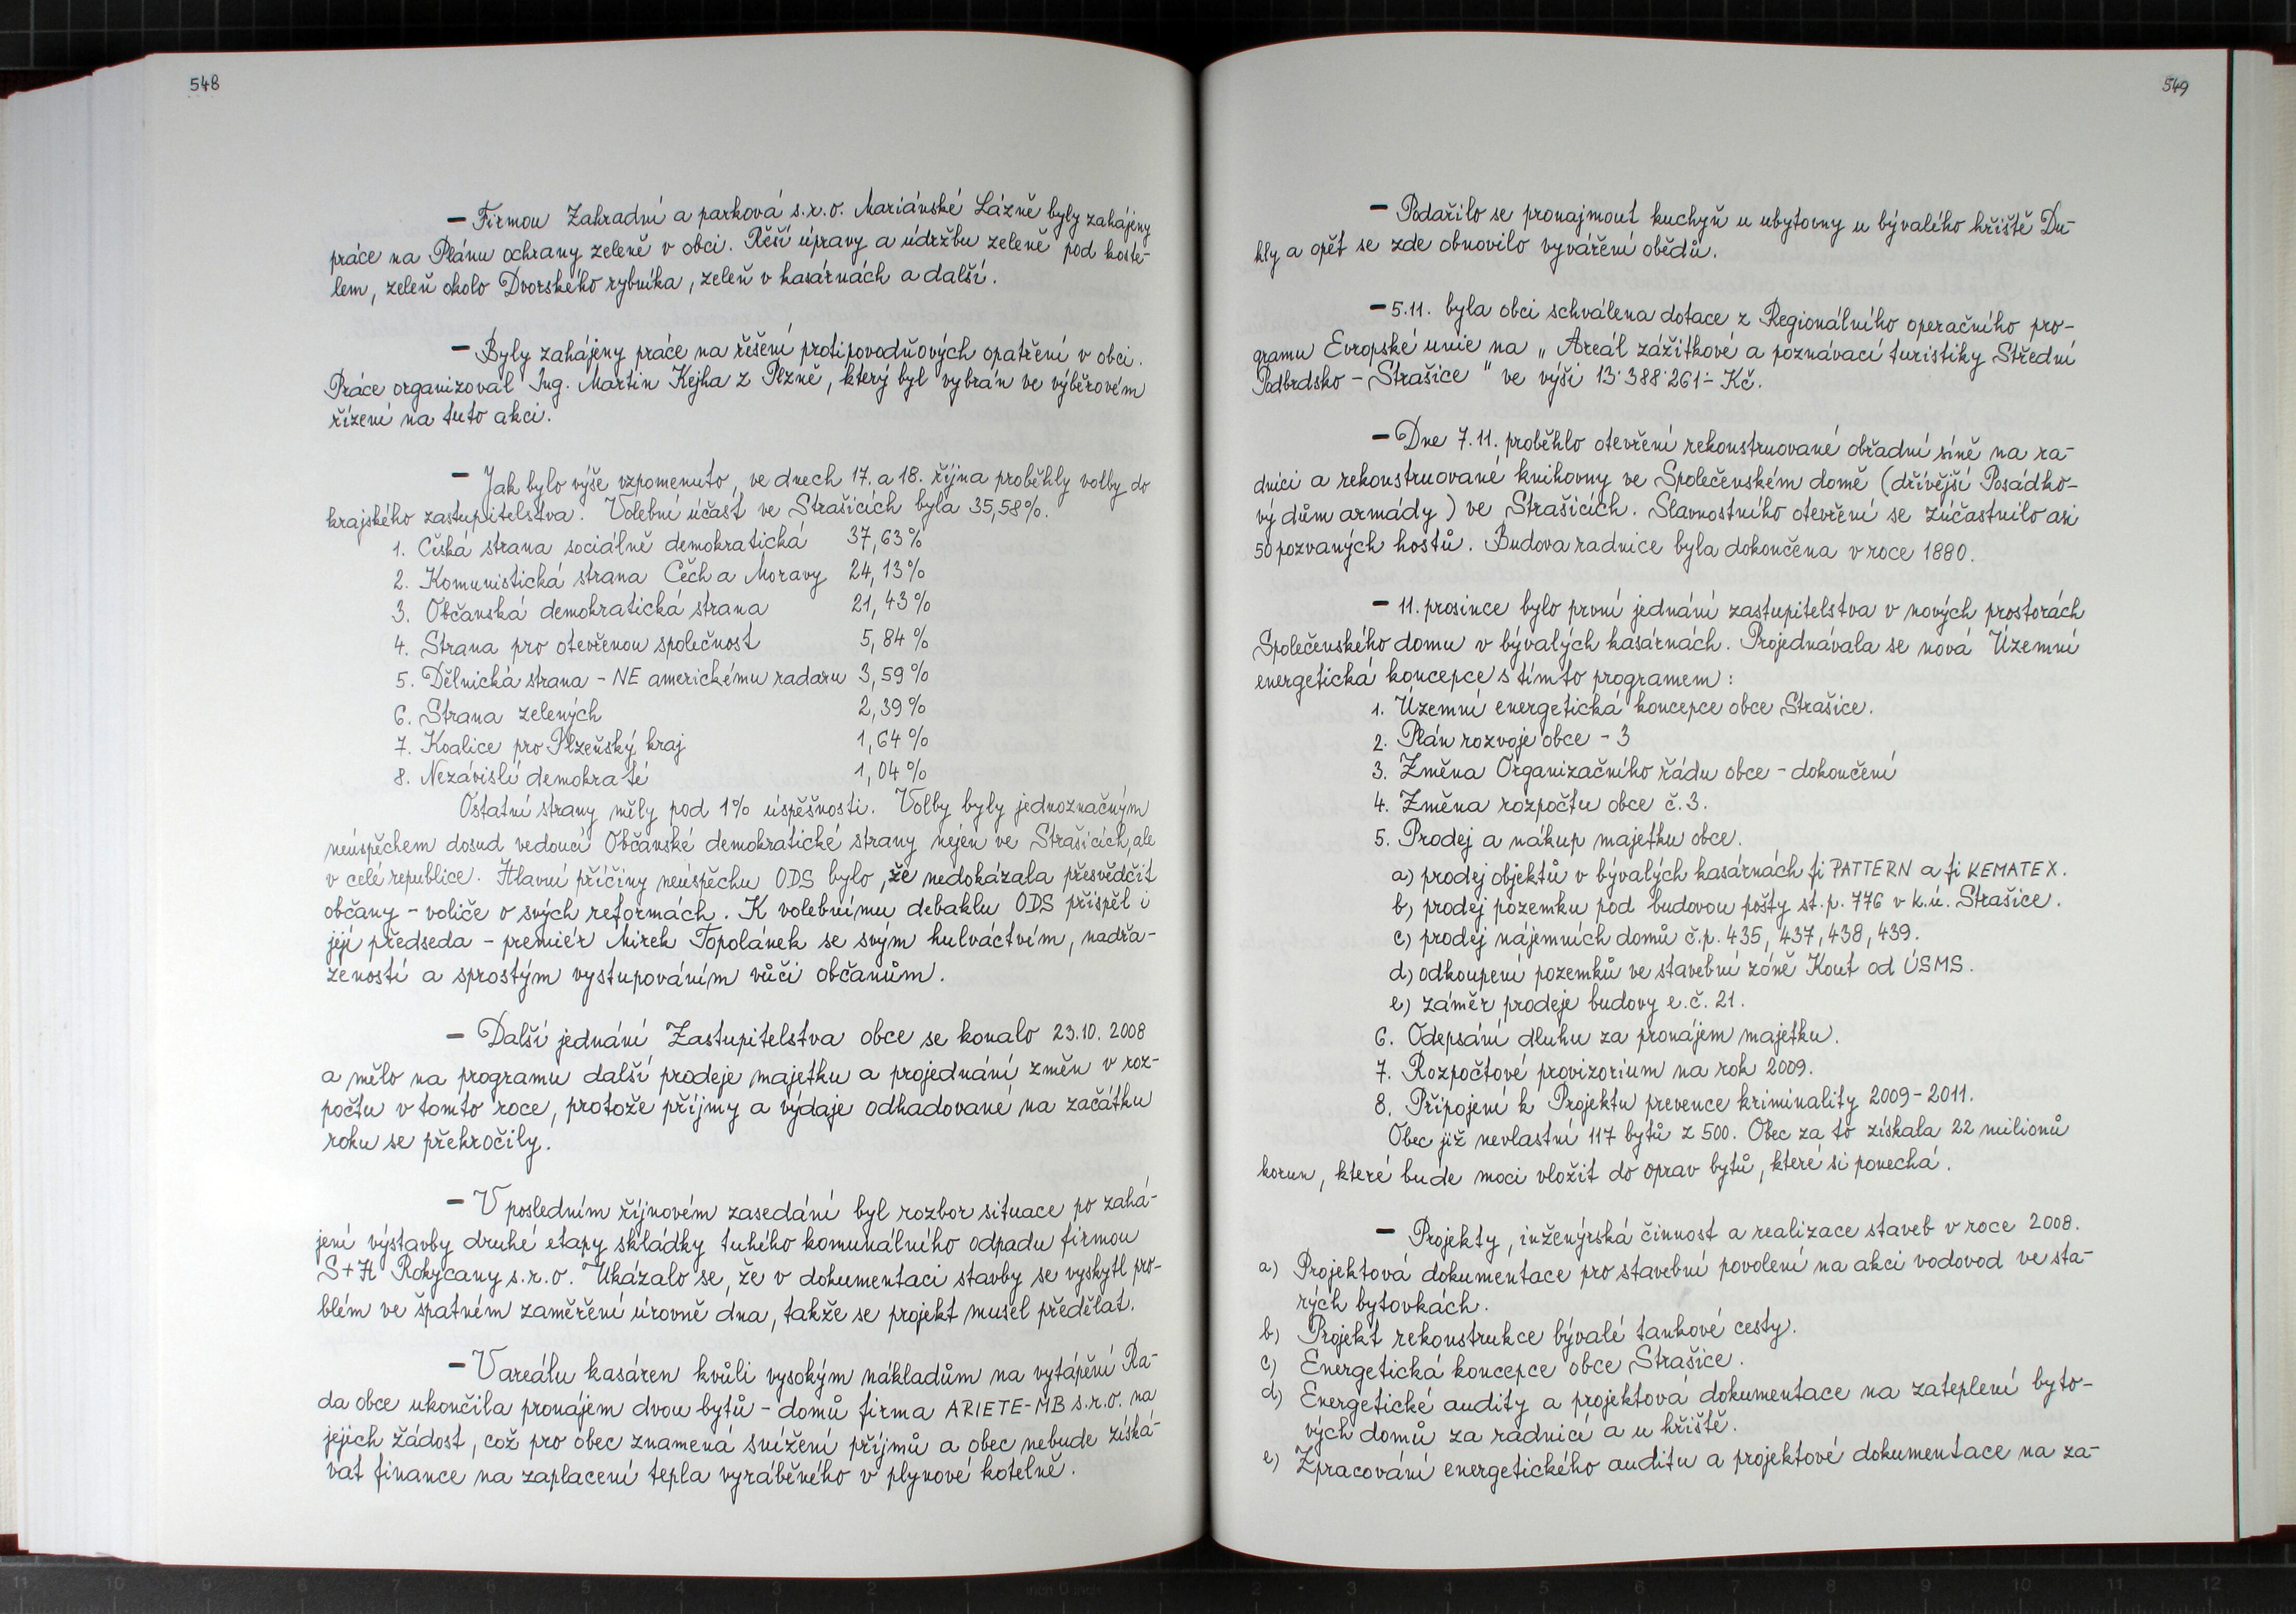 548
– Firmou Zahradní a parková s.r.o. Mariánské Lázně byly zahájeny
práce na Plánu ochrany zeleně v obci. Řeší úpravy a údržbu zeleně pod koste-
lem, zeleň okolo Dvorského rybníka, zeleň v kasárnách a další.
– Byly zahájeny práce na řešení protipovodňových opatření v obci.
Práce organizoval Ing. Martin Kejha z Plzně, který byl vybrán ve výběrovém
řízení na tuto akci.
– Jak bylo výše vzpomenuto, ve dnech 17. a 18. října proběhly volby do
krajského zastupitelstva. Volební účast ve Strašicích byla 35,58%.
1. Česká strana sociálně demokratická 37,63%
2. Komunistická strana Čech a Moravy 24,13%
3. Občanská demokratická strana 21,43%
4. Strana pro otevřenou společnost 5,84%
5. Dělnická strana – NE americkému radaru 3,59%
6. Strana zelených 2,39%
7. Koalice pro Plzeňský kraj 1,64%
8. Nezávislí demokraté 1,04%
Ostatní strany měly pod 1% úspěšnosti. Volby byly jednoznačným
neúspěchem dosud vedoucí Občanské demokratické strany nejen ve Strašicích, ale
v celé republice. Hlavní příčiny neúspěchu ODS bylo, že nedokázala přesvědčit
občany – voliče o svých reformách. K volebnímu debaklu ODS přispěl i
její předseda – premiér Mirek Topolánek se svým hulváctvím, nadřa-
zeností a sprostým vystupováním vůči občanům.
– Další jednání Zastupitelstva obce se konalo 23.10. 2008
a mělo na programu další prodeje majetku a projednání změn v roz-
počtu v tomto roce, protože příjmy a výdaje odhadované na začátku
roku se překročily.
– V posledním říjnovém zasedání byl rozbor situace po zahá-
jení výstavby druhé etapy skládky tuhého komunálního odpadu firmou
S+H Rokycany s.r.o. Ukázalo se, že v dokumentaci stavby se vyskytl pro-
blém ve špatném zaměření úrovně dna, takže se projekt musel předělat.
– V areálu kasáren kvůli vysokým nákladům na vytápění Ra-
da obce ukončila pronájem dvou bytů – domů firma ARIETE-MB s.r.o. na
jejich žádost, což pro obec znamená snížení příjmů a obec nebude získá-
vat finance na zaplacení tepla vyráběného v plynové kotelně.
549
– Podařilo se pronajmout kuchyň u ubytovny u bývalého hřiště Du-
kly a opět se zde obnovilo vyváření obědů.
– 5.11. byla obci schválena dotace z Regionálního operačního pro-
gramu Evropské unie na „Areál zážitkové a poznávací turistiky Střední
Podbrdsko – Strašice" ve výši 13˙388˙261,- Kč.
– Dne 7.11. proběhlo otevření rekonstruované obřadní síně na ra-
dnici a rekonstruované knihovny ve Společenském domě (dřívější Posádko-
vý dům armády) ve Strašicích. Slavnostního otevření se zúčastnilo asi
50 pozvaných hostů. Budova radnice byla dokončena v roce 1880.
– 11. prosince bylo první jednání zastupitelstva v nových prostorách
Společenského domu v bývalých kasárnách. Projednávala se nová Územní
energetická koncepce s tímto programem:
1. Územní energetická koncepce obce Strašice.
2. Plán rozvoje obce – 3
3. Změna Organizačního řádu obce – dokončení
4. Změna rozpočtu obce č. 3.
5. Prodej a nákup majetku obce.
a) prodej objektů v bývalých kasárnách fi PATTERN a fi KEMATEX.
b) prodej pozemku pod budovou pošty st. p. 776 v k.ú. Strašice.
c) prodej nájemních domů č.p. 435, 437, 438, 439.
d) odkoupení pozemků ve stavební zóně Kout od ÚSMS.
e) záměr prodeje budovy e.č. 21.
6. Odepsání dluhu za pronájem majetku.
7. Rozpočtové provizorium na rok 2009.
8. Připojení k Projektu prevence kriminality 2009–2011.
Obec již nevlastní 117 bytů z 500. Obec za to získala 22 milionů
korun, které bude moci vložit do oprav bytů, které si ponechá.
– Projekty, inženýrská činnost a realizace staveb v roce 2008.
a) Projektová dokumentace pro stavební povolení na akci vodovod ve sta-
rých bytovkách.
b) Projekt rekonstrukce bývalé tankové cesty.
c) Energetická koncepce obce Strašice.
d) Energetické audity a projektová dokumentace na zateplení byto-
vých domů za radnicí a u hřiště.
e) Zpracování energetického auditu a projektové dokumentace na za-
11 10 9 8 7 6 5 4 3 2 1 1 2 3 4 5 6 7 8 9 10 11 12